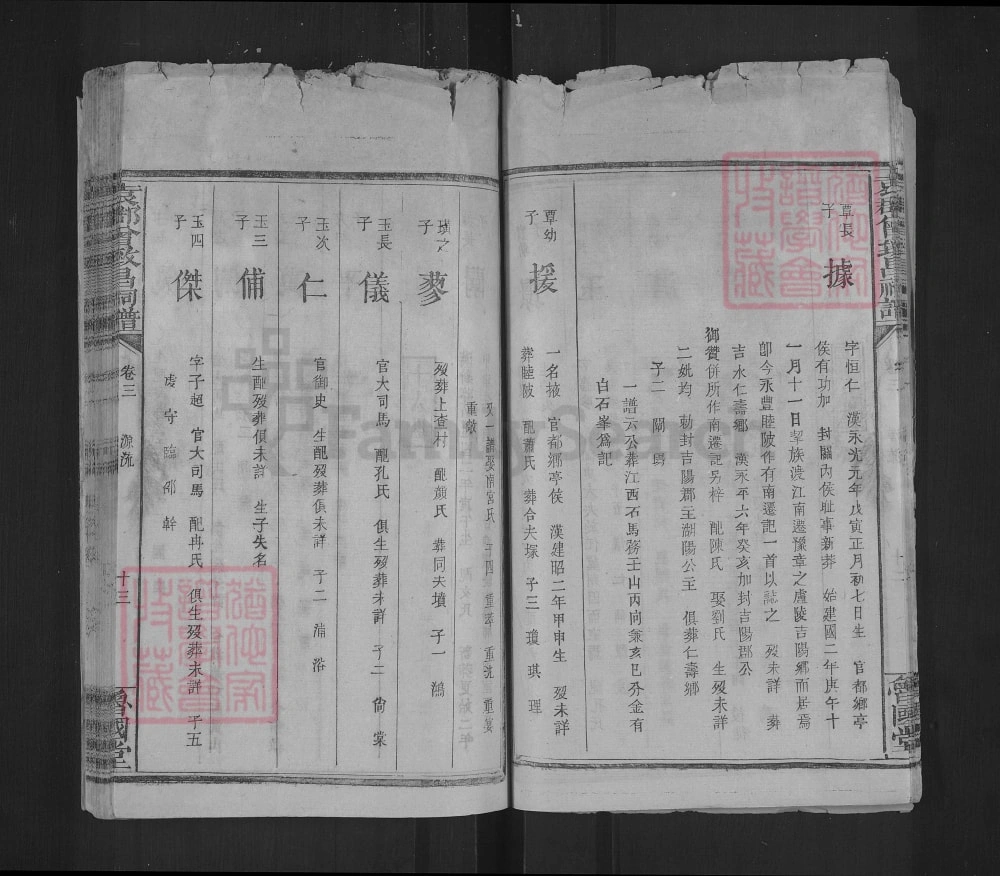 覃長
子
據
字恒仁 漢永光元年戊寅正月初七日生 官都鄉亭
侯有功加 封關內侯耻事新莽 始建國二年庚午十
一月十一日挈族渡江南遷豫章之盧陵吉陽鄉而居焉
卽今永豐睦陂作有南遷記一首以誌之 歿未詳 葬
吉水仁壽鄉 漢永平六年癸亥加封吉陽郡公
御贊併所作南遷記另梓 配陳氏 娶劉氏 生歿未詳
二妣均 勅封吉陽郡主 湖陽公主 俱葬仁壽鄉
子二 闡
一譜云公葬江西石馬務壬山丙向兼亥巳分金有
白石峯爲記
覃幼
子
援
一名掖 官都鄉亭侯 漢建昭二年甲申生 歿未詳
葬睦陂 配蕭氏 葬合夫塚 子三 瓊 琪 理
子
蓼
歿葬上查村 配顏氏 葬同夫墳 子一 鴻
玉長
子
儀
官大司馬 配孔氏 俱生歿葬未詳 子二 尙 棠
玉次
子
仁
官御史 生配歿葬俱未詳 子二 浦 浴
玉三
子
俌
生配歿葬俱未詳 生子失名
玉四
子
傑
字子超 官大司馬 配冉氏 俱生歿葬未詳 子五
虔 守 臨 邵 幹
袁都曾敦昌祠譜
卷三
源流
十三
魯國堂
FamilySearch